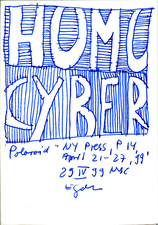 HOMO
CYBER
Polaroid - NY Press, P 14,
April 21-27, '99
29 IV 99 NYC